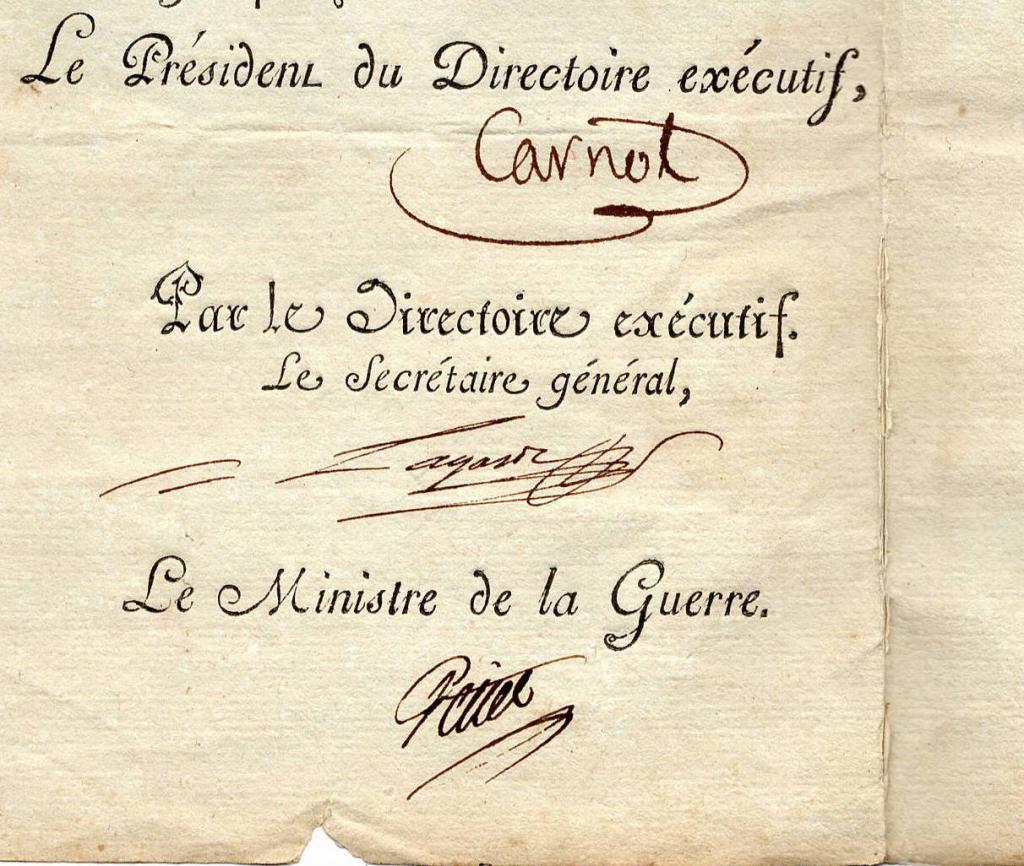 Le Président du Directoire exécutif,
Carnot
Par le Directoire exécutif.
Le Secrétaire général,
Lagarde
Le Ministre de la Guerre.
Petiet